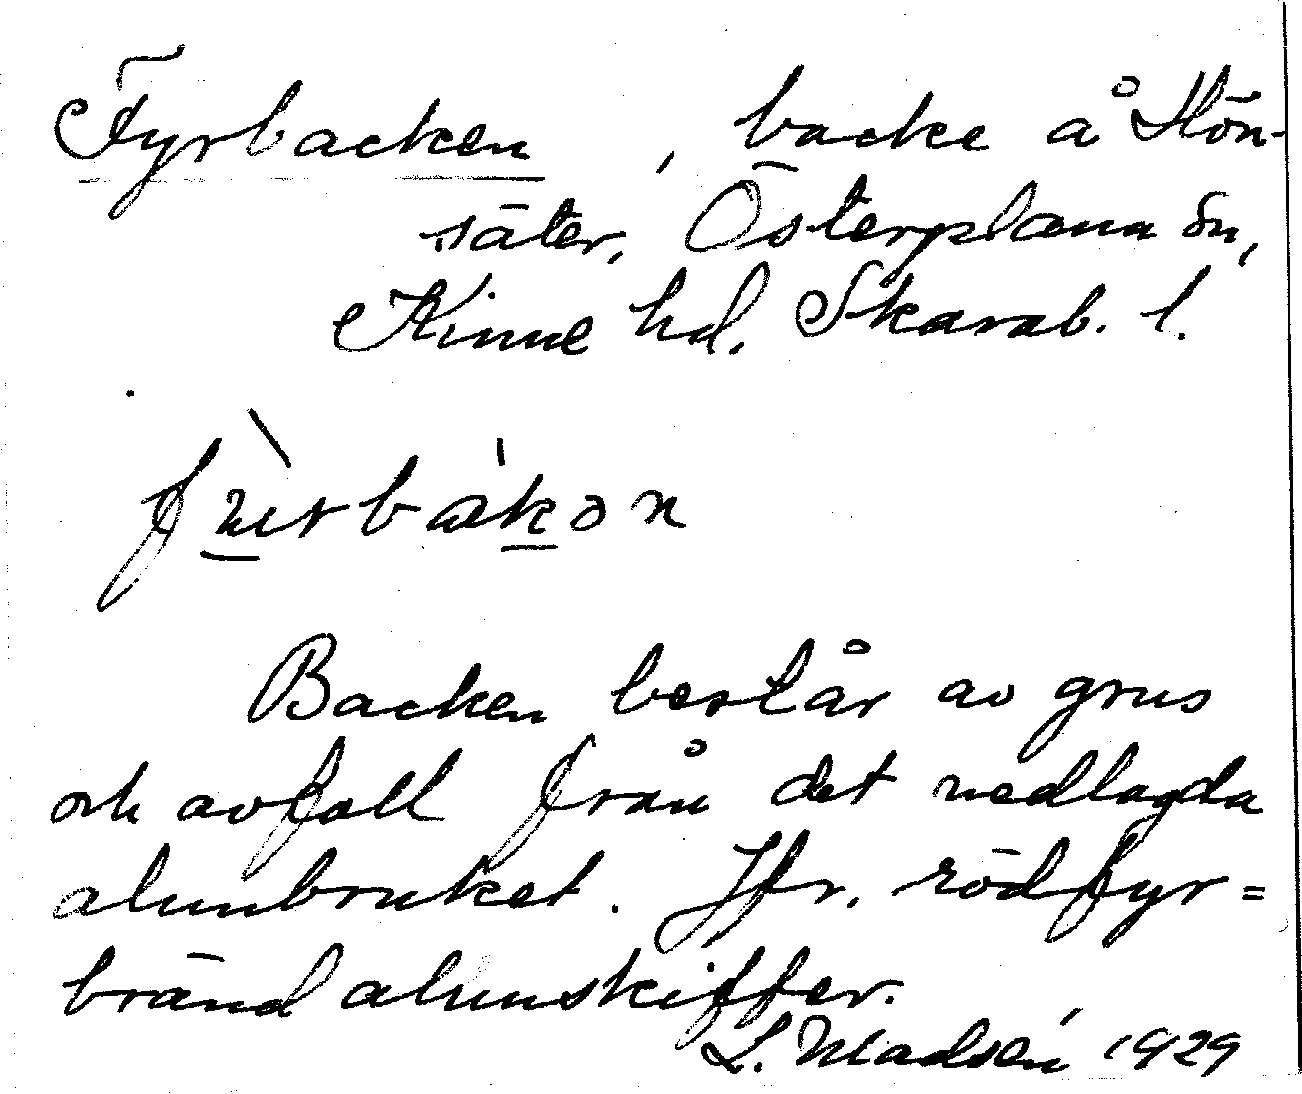 Fyrbacken, backe å Hön-
säter, Österplana sn,
Kinne hd. Skarab. l.
Backen består av grus
och avfall från det nedlagda
alunbruket. Jfr. rödfyr=
bränd alunskiffer.
L. Madsén 1929